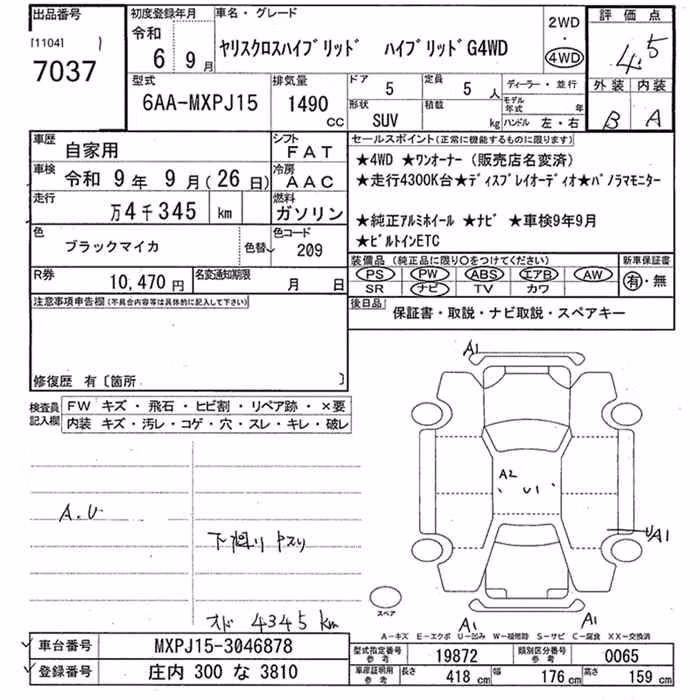 出品番号
[1104]
7037
初度登録年月
令和
6 9月
車名・グレード
ヤリスクロスハイブリッド ハイブリッドG4WD
2WD
・
4WD
評価点
4.5
外装 内装
B A
型式
6AA-MXPJ15
排気量
1490
CC
ドア
5
定員
5 人
形状
SUV
積載
kg
ディーラー・並行
モデル年式 年
ハンドル 左・右
車歴
自家用
シフト
FAT
車検
令和 9年 9月(26日)
冷房
AAC
走行
万4千345 km
燃料
ガソリン
色
ブラックマイカ
色替
色コード
209
R券
10,470円
名変通知期限
月 日
セールスポイント(正常に機能するものに限ります)
★4WD ★ワンオーナー(販売店名変済)
★走行4300K台★ディスプレイオーディオ★パノラマモニター
★純正アルミホイール ★ナビ ★車検9年9月
★ビルトインETC
装備品(純正品に限り○をつけてください)
PS PW ABS エアB AW
SR ナビ TV カワ
新車保証書
有・無
後日品
保証書・取説・ナビ取説・スペアキー
注意事項申告欄(不具合内容等は具体的に記入して下さい)
修復歴 有〔箇所 〕
検査員記入欄
FW キズ・飛石・ヒビ割・リペア跡・×要
内装 キズ・汚レ・コゲ・穴・スレ・キレ・破レ
A.U
下廻り ヤスリ
オド 4345 km
A1
A2
U1
UA1
A1
A1
スペア
A－キズ E－エクボ U－凹み W－補修跡 S－サビ C－腐食 XX－交換済
車台番号
MXPJ15-3046878
登録番号
庄内 300 な 3810
型式指定番号
参考
19872
類別区分番号
参考
0065
車庫証明用
参考
長さ 418 cm 幅 176 cm 高さ 159 cm